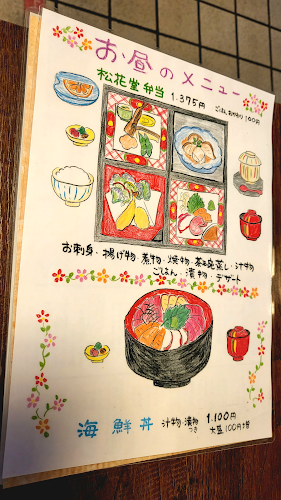 お昼のメニュー
松花堂弁当 1.375円 ごはん おかわり 100円
お刺身・揚げ物・煮物・焼物・茶碗蒸し・汁物
ごはん・漬物・デザート
海鮮丼 汁物・漬物つき 1.100円
大盛100円増